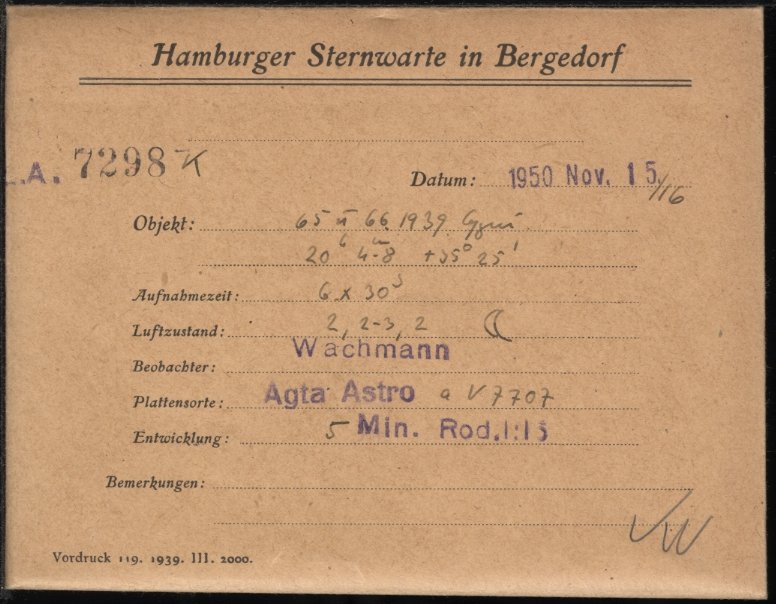 Hamburger Sternwarte in Bergedorf
L.A. 7298 K
Datum: 1950 Nov. 15/16
Objekt: 65 u 66. 1939 Cygni
20h 4m.8 +35° 25'
Aufnahmezeit: 6 x 30s
Luftzustand: 2, 2-3, 2
Beobachter: Wachmann
Plattensorte: Agfa Astro a V7707
Entwicklung: 5 Min. Rod. 1:15
Bemerkungen:
Vordruck 119. 1939. III. 2000.